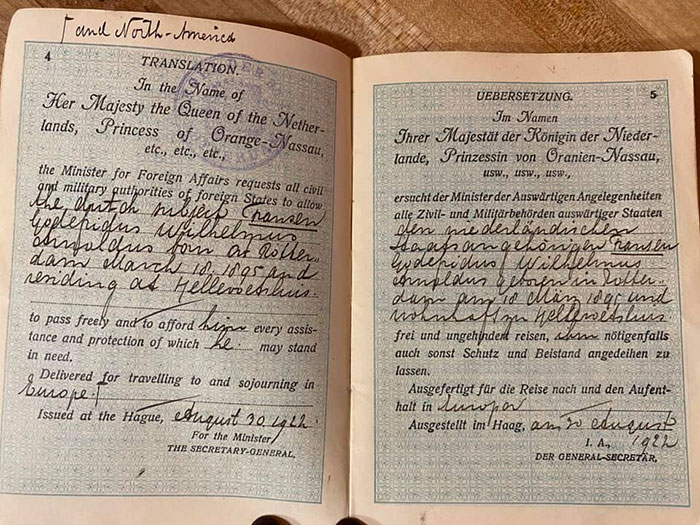 ⌈and North-America
4
TRANSLATION.
In the Name of
Her Majesty the Queen of the Nether-
lands, Princess of Orange-Nassau,
etc., etc., etc.,
the Minister for Foreign Affairs requests all civil
and military authorities of foreign States to allow
the dutch subject Fransen
Godefridus Wilhelmus
Arnoldus born at Rotter-
dam March 18, 1895 and
residing at Hellevoetsluis.
to pass freely and to afford him every assis-
tance and protection of which he may stand
in need.
Delivered for travelling to and sojourning in
Europe. ⌈
Issued at the Hague, August 30 1922.
For the Minister
THE SECRETARY-GENERAL,
5
UEBERSETZUNG.
Im Namen
Ihrer Majestät der Königin der Nieder-
lande, Prinzessin von Oranien-Nassau,
usw., usw., usw.,
ersucht der Minister der Auswärtigen Angelegenheiten
alle Zivil- und Militärbehörden auswärtiger Staaten
den niederländischen
Staatsangehörigen Fransen
Godefridus Wilhelmus
Arnoldus geboren in Rotter-
dam am 18 März 1895 und
wohnhaft zu Hellevoetsluis
frei und ungehindert reisen, ihm nötigenfalls
auch sonst Schutz und Beistand angedeihen zu
lassen.
Ausgefertigt für die Reise nach und den Aufent-
halt in Europa
Ausgestellt im Haag, am 30 August
1922
I. A.,
DER GENERAL-SECRETÄR,